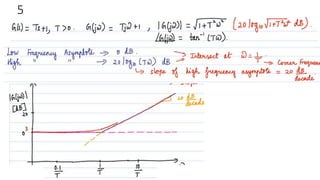 5
G(s) = Ts+1, T > 0. G(jω) = Tjω+1, |G(jω)| = √1+T²ω² (20 log₁₀ √1+T²ω² dB.)
/G(jω) = tan⁻¹(Tω).
Low Frequency Asymptote → 0 dB.
High " " → 20 log₁₀ (Tω) dB
Intersect at ω = 1/T
→ Corner Frequency
slope of high frequency asymptote = 20 dB/decade
|G(jω)|
[dB]
20
3
0
20 dB/decade
0.1/T
1/T
10/T